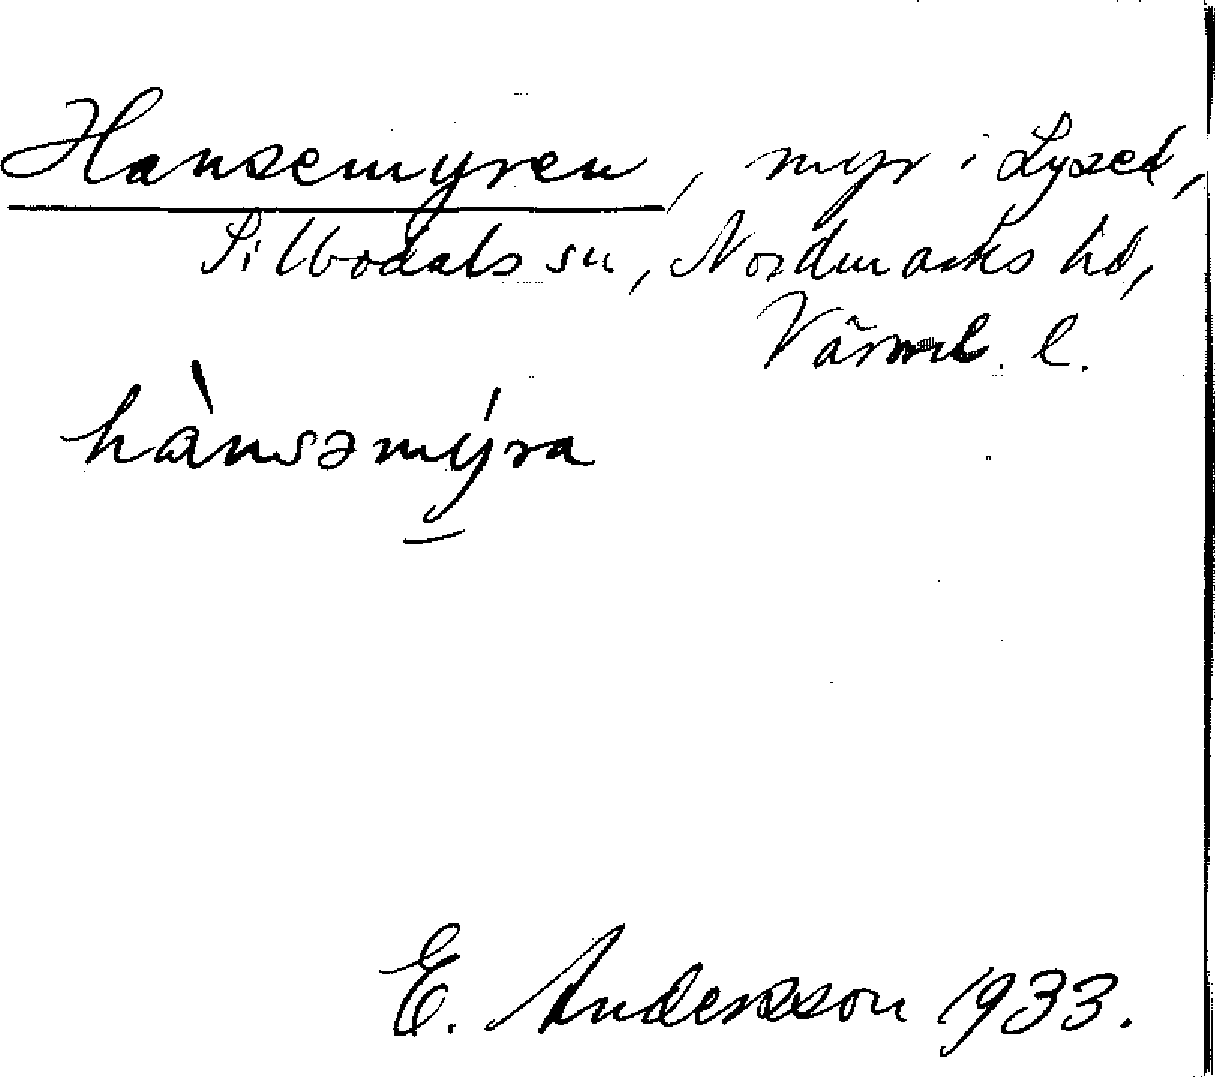 Hansemyren, myr i Lysed,
Silbodals sn, Nordmarks hd,
Värml. l.
hànsəmýra
E. Andersson 1933.